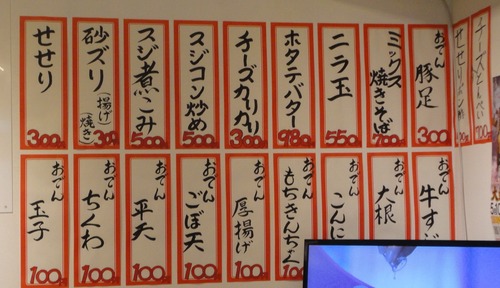 せせり
300円
砂ズリ(揚げ)(焼き)
300
スジ煮こみ
500
スジコン炒め
500
チーズカリカリ
300
ホタテバター
980
ニラ玉
550
ミックス焼きそば
700
おでん
豚足
300
せせりポン酢
チーズとんぺい
700円
おでん
玉子
100円
おでん
ちくわ
100円
おでん
平天
100円
おでん
ごぼ天
100円
おでん
厚揚げ
100円
おでん
もちきんちゃく
おでん
こんに
おでん
大根
おでん
牛すじ